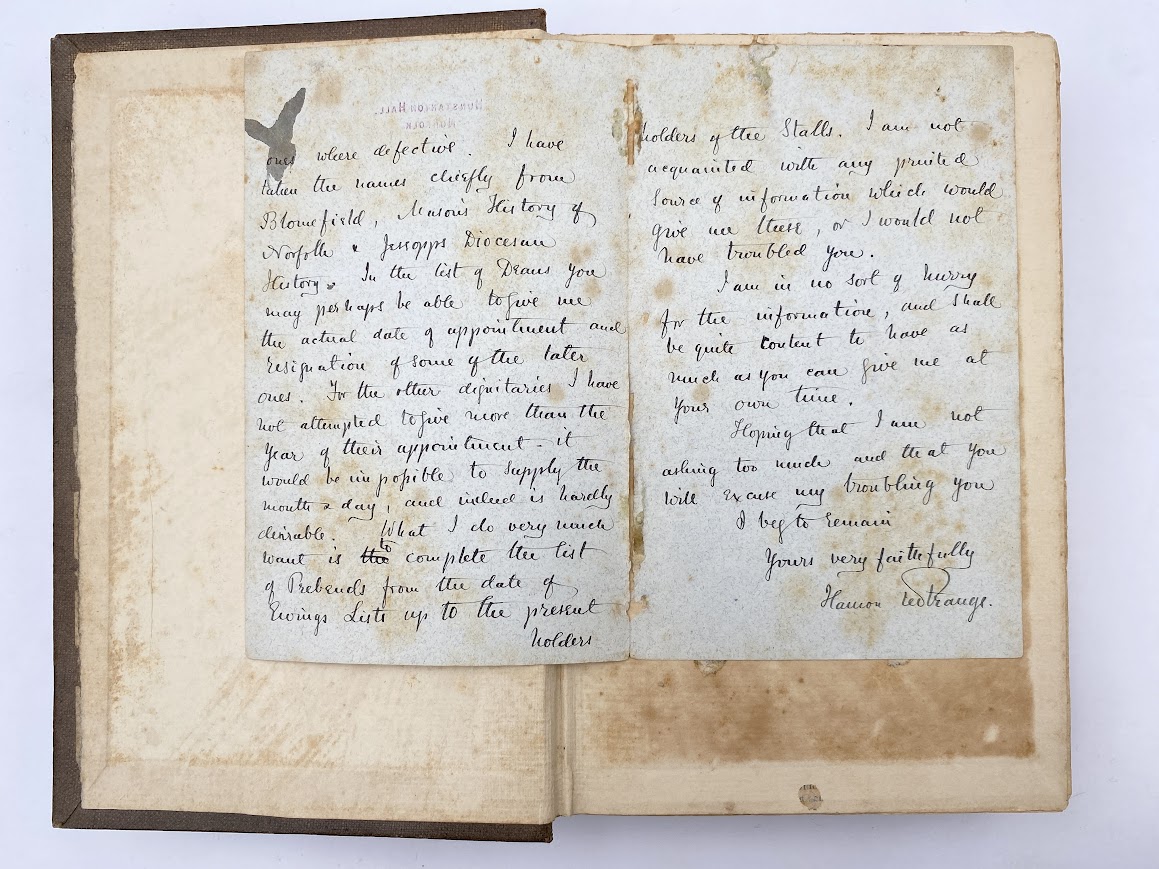 HUNSTANTON HALL,
NORFOLK
ones where defective. I have
taken the names chiefly from
Blomefield, Mason's History of
Norfolk & Jessopps Diocesan
History. In the list of Deans you
may perhaps be able to give me
the actual date of appointment and
resignation of some of the later
ones. For the other dignitaries I have
not attempted to give more than the
year of their appointment - it
would be impossible to supply the
month & day, and indeed is hardly
desirable. What I do very much
want is the to complete the list
of Prebends from the date of
Ewings Lists up to the present
holders
holders of the Stalls. I am not
acquainted with any printed
source of information which would
give me these, or I would not
have troubled you.
I am in no sort of hurry
for the information, and shall
be quite content to have as
much as you can give me at
your own time.
Hoping that I am not
asking too much and that you
will excuse my troubling you
I beg to remain
Yours very faithfully
Hamon leStrange.